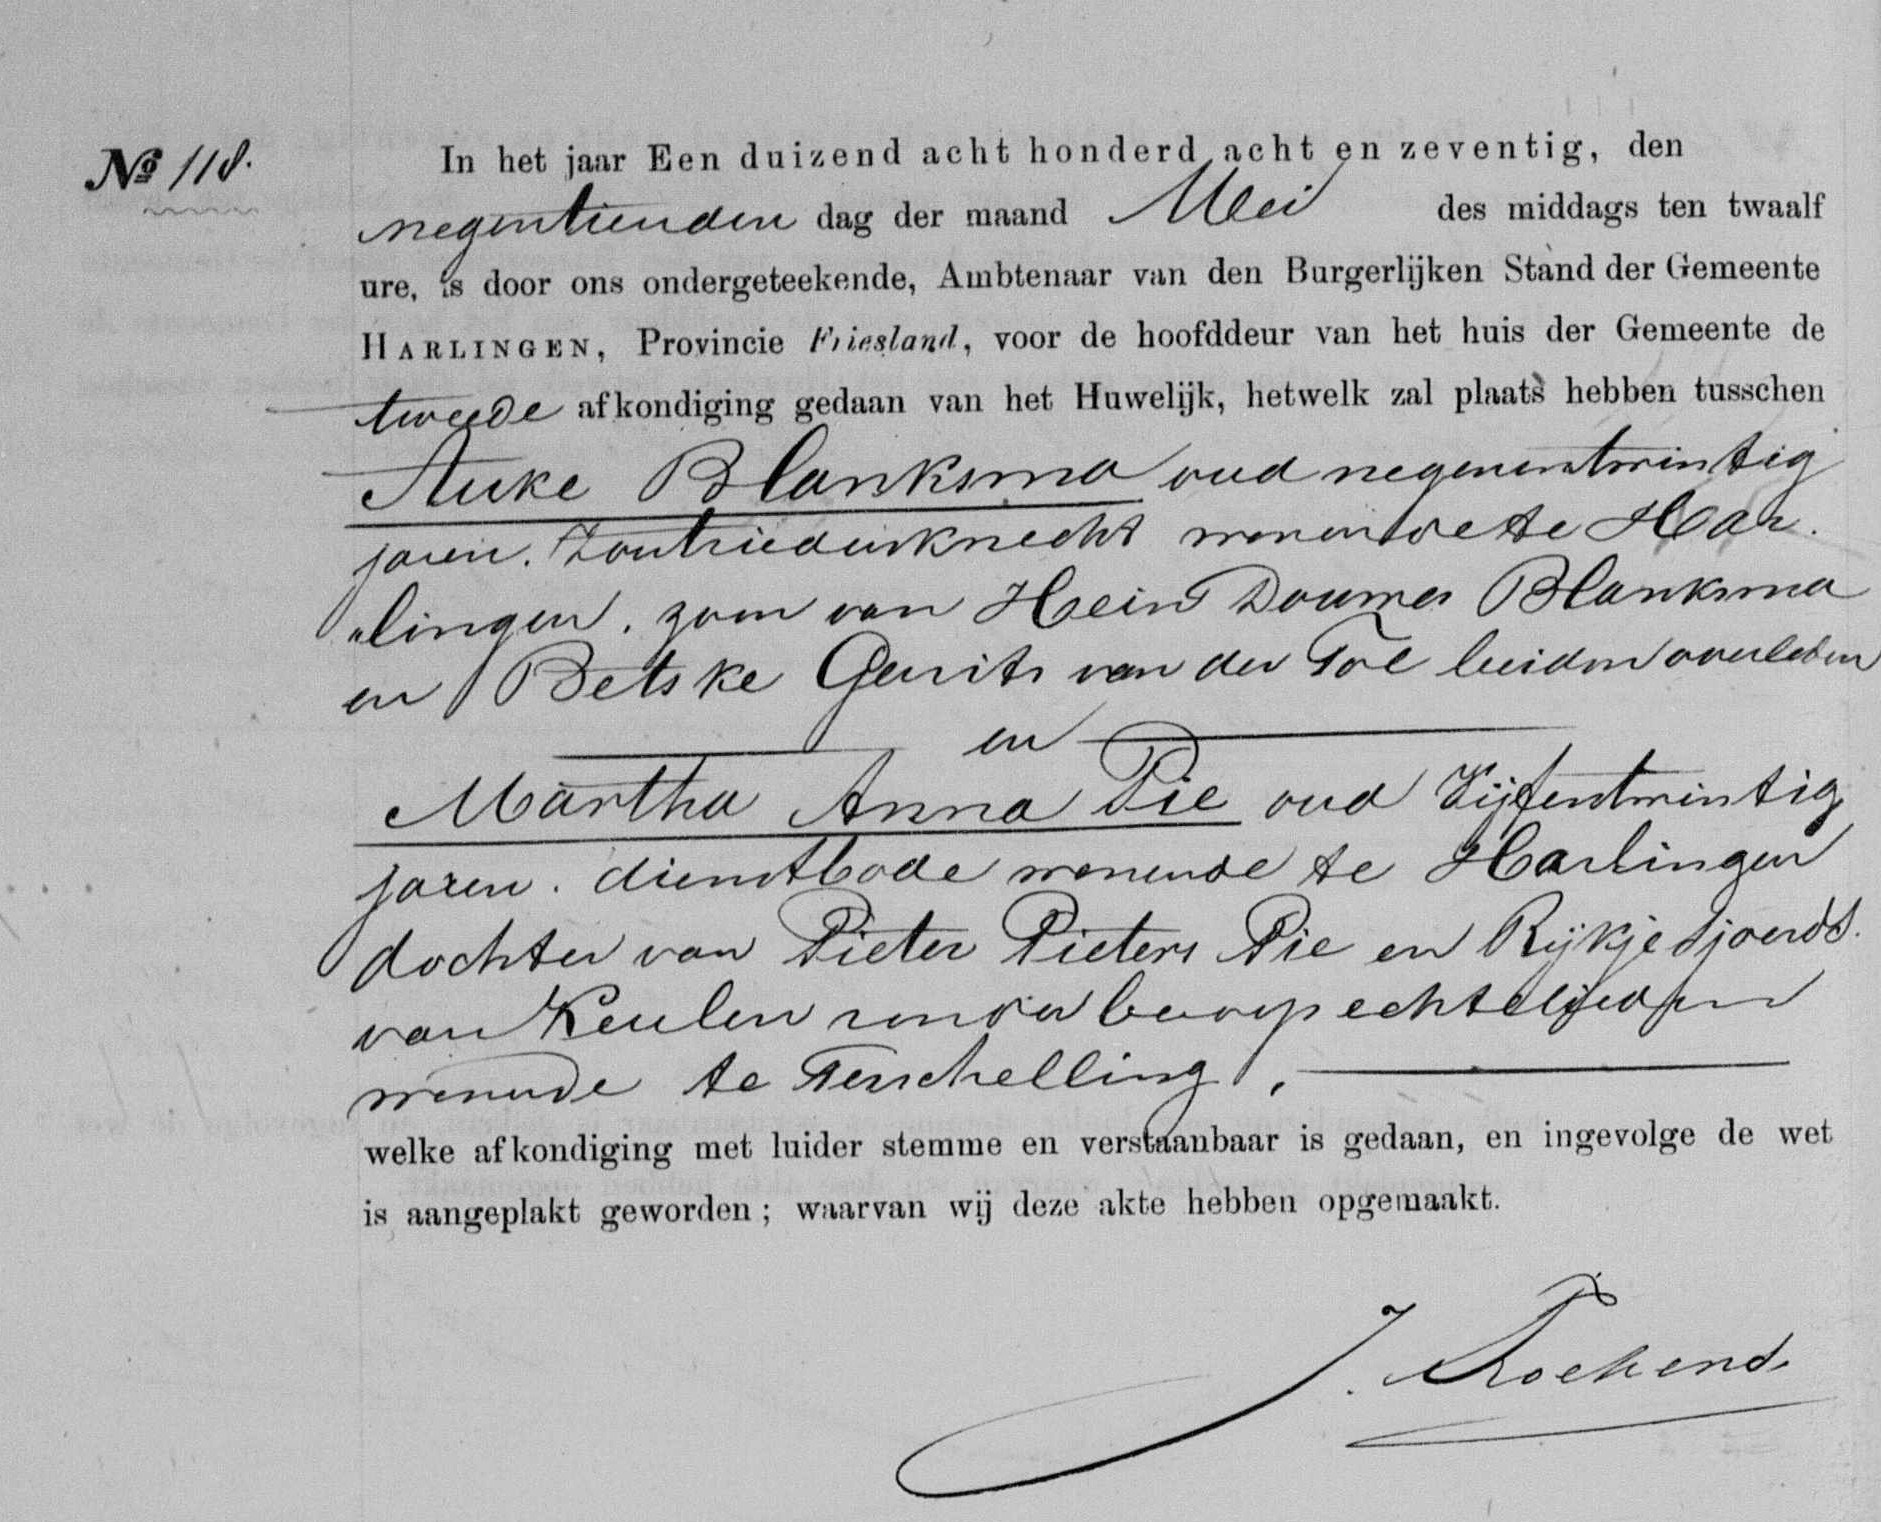 No 118.
In het jaar Een duizend acht honderd acht en zeventig, den
negentienden dag der maand Mei des middags ten twaalf
ure, is door ons ondergeteekende, Ambtenaar van den Burgerlijken Stand der Gemeente
HARLINGEN, Provincie Friesland, voor de hoofddeur van het huis der Gemeente de
tweede afkondiging gedaan van het Huwelijk, hetwelk zal plaats hebben tusschen
Auke Blanksma oud negenentwintig
jaren. Zoutziedersknecht wonende te Har
„lingen, zoon van Hein Douwes Blanksma
en Betske Gerrits van der Tol beiden overleden
en
Martha Anna Pie oud Vijfentwintig
jaren. dienstbode wonende te Harlingen
dochter van Pieter Pieters Pie en Rijkje Sjoerds.
van Keulen zonder beroep echtelieden
wonende te Terschelling,
welke afkondiging met luider stemme en verstaanbaar is gedaan, en ingevolge de wet
is aangeplakt geworden; waarvan wij deze akte hebben opgemaakt.
J.